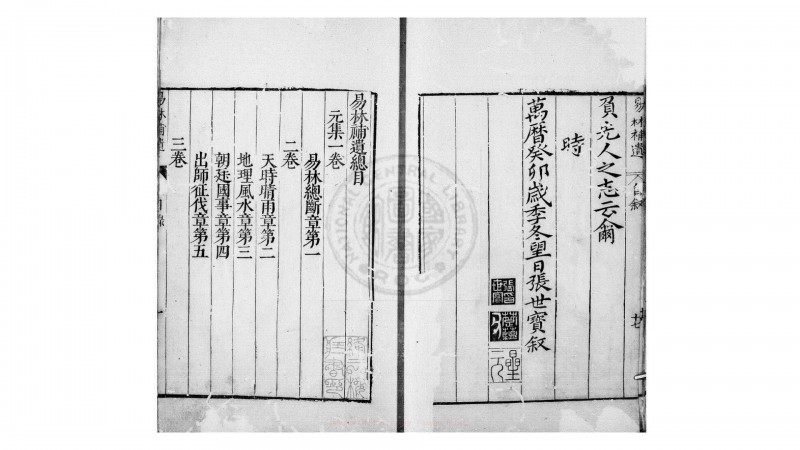 易林補遺
自叙
負先人之志云爾
時
萬曆癸卯歲季冬望日張世寶叙
易林補遺總目
元集一卷
易林總斷章第一
二卷
天時晴雨章第二
地理風水章第三
朝廷國事章第四
出師征伐章第五
三卷
易林補遺
目錄